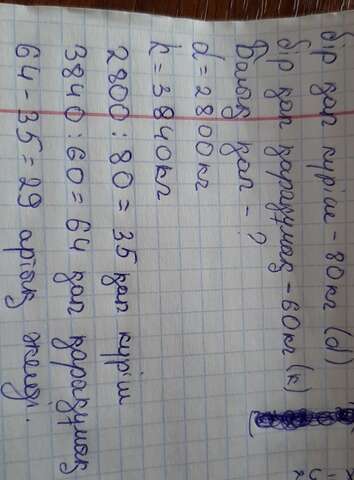 бір қап күріш - 80кг (d)
бір қап қарақұмық - 60кг (к)
қап - ?
d = 2800кг
к = 3840кг
2800 : 80 = 35 қап күріш
3840 : 60 = 64 қап қарақұмық
64 - 35 = 29 артық